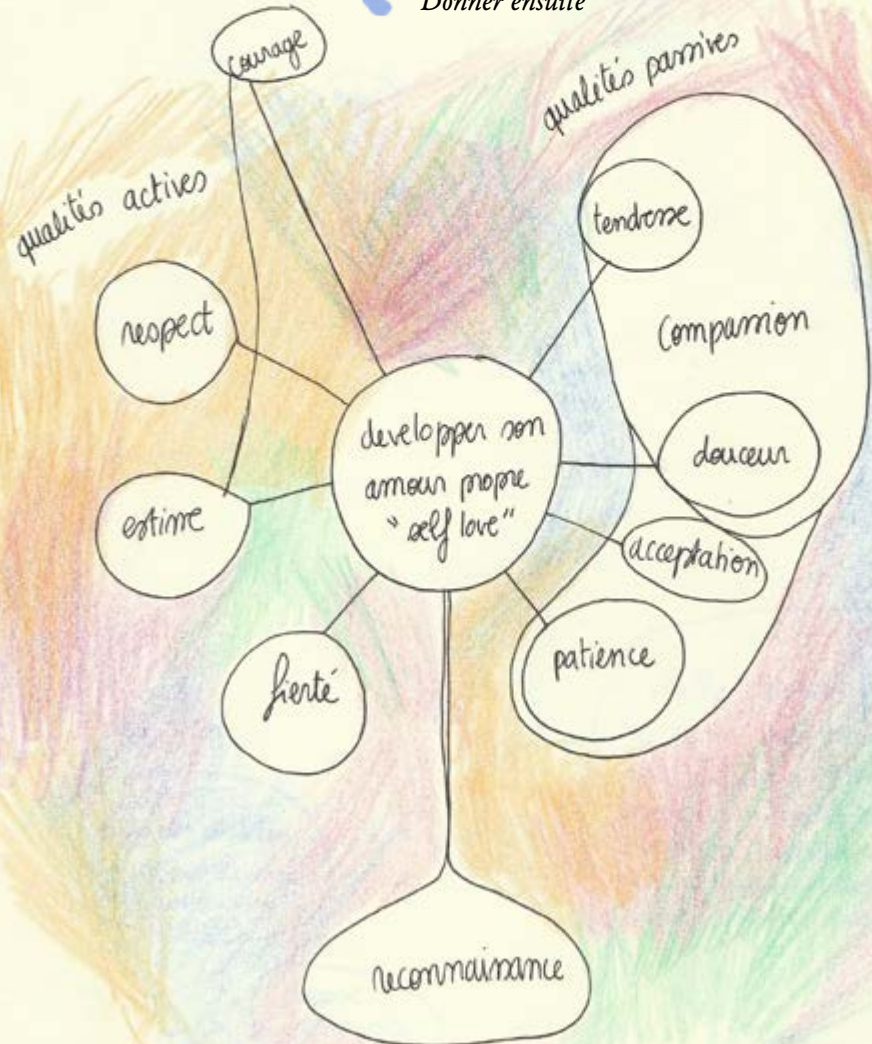 Donner ensuite
courage
qualités passives
qualités actives
tendresse
respect
compassion
developper son
amour propre
"self love"
douceur
estime
acceptation
patience
fierté
reconnaissance